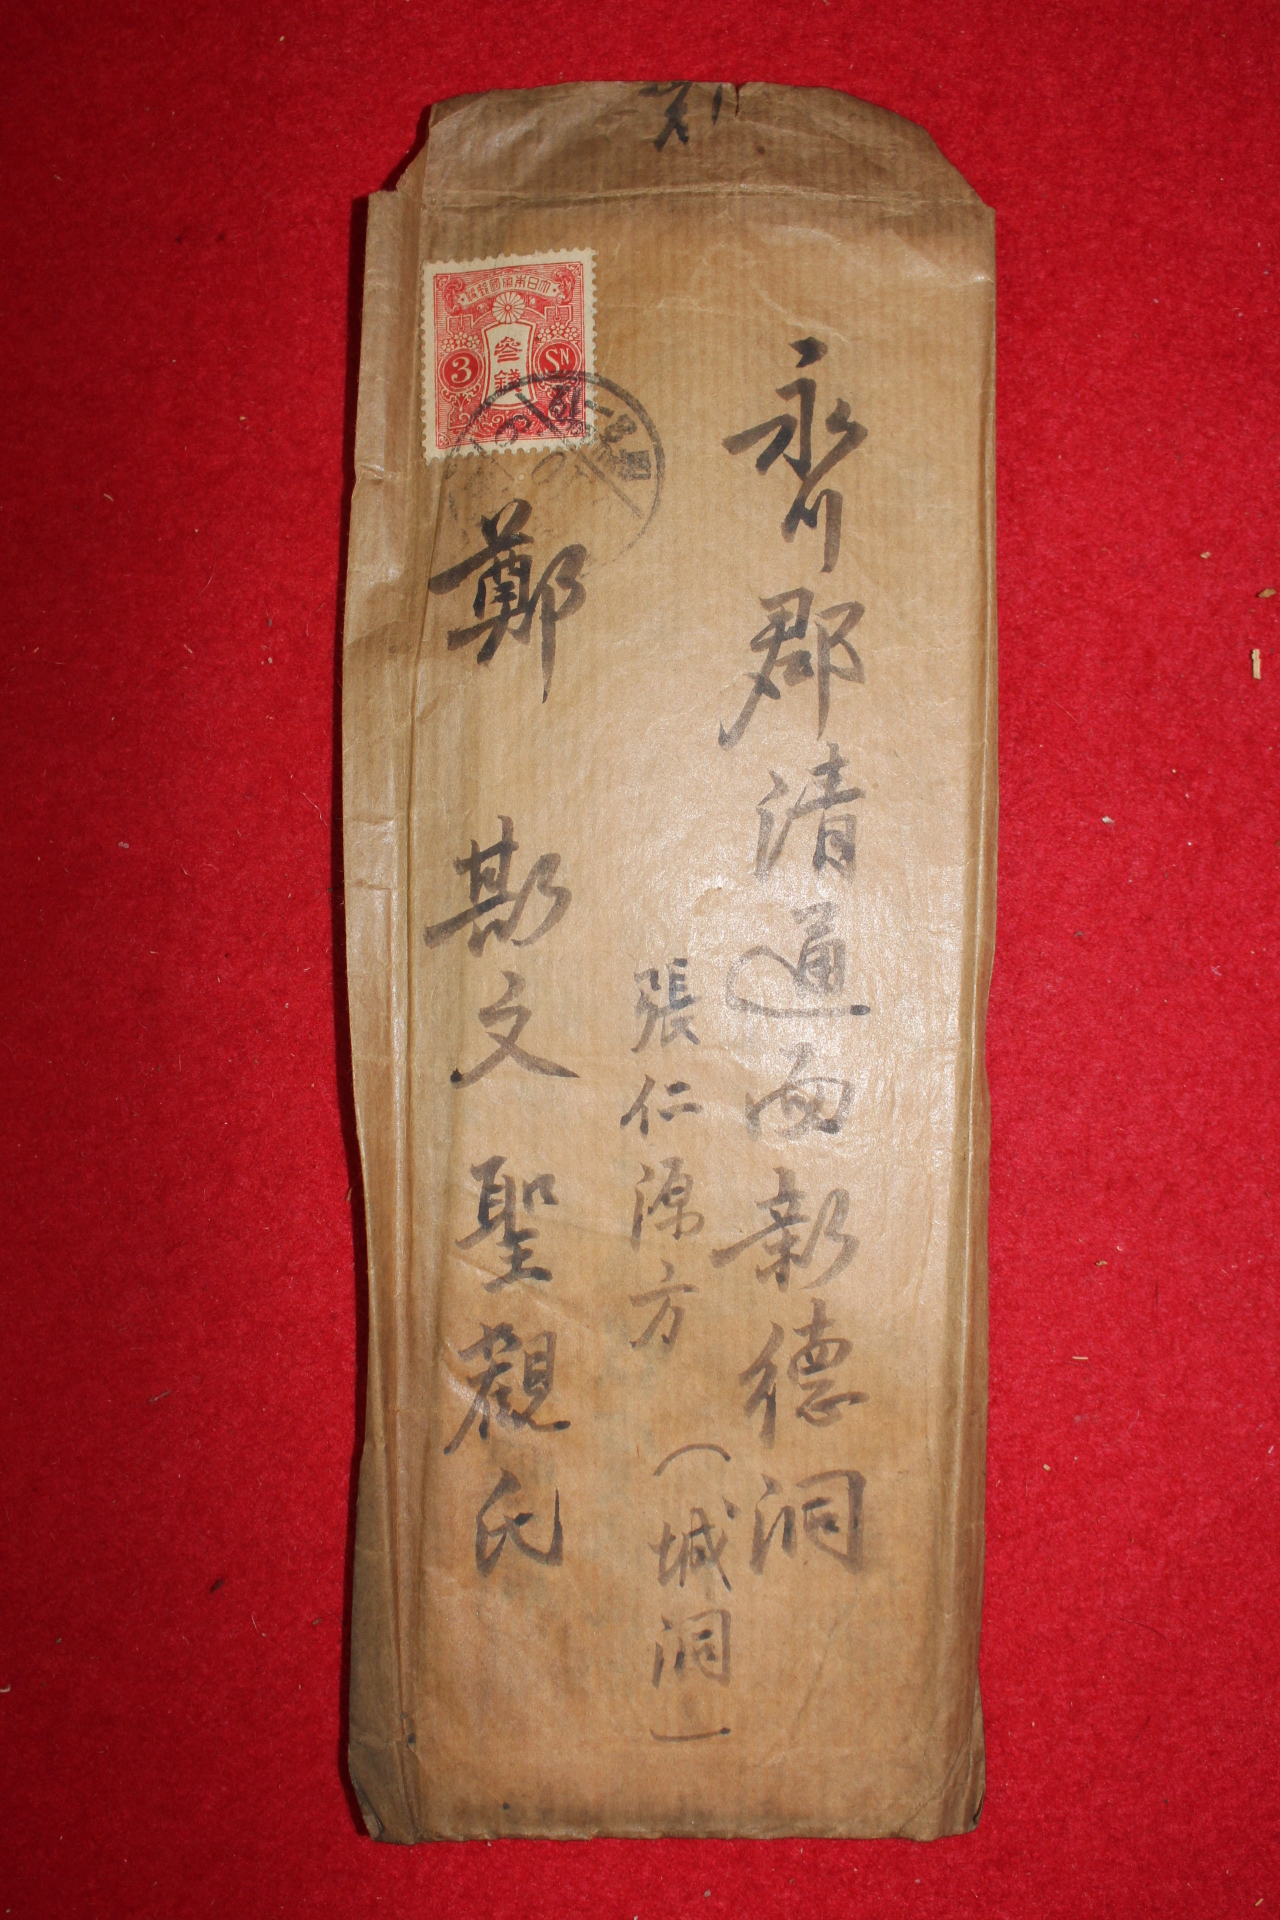 永川郡清通面新德洞
張仁源方(城洞)
鄭 斯文 聖觀氏
大日本帝國郵便
参錢
3
SN